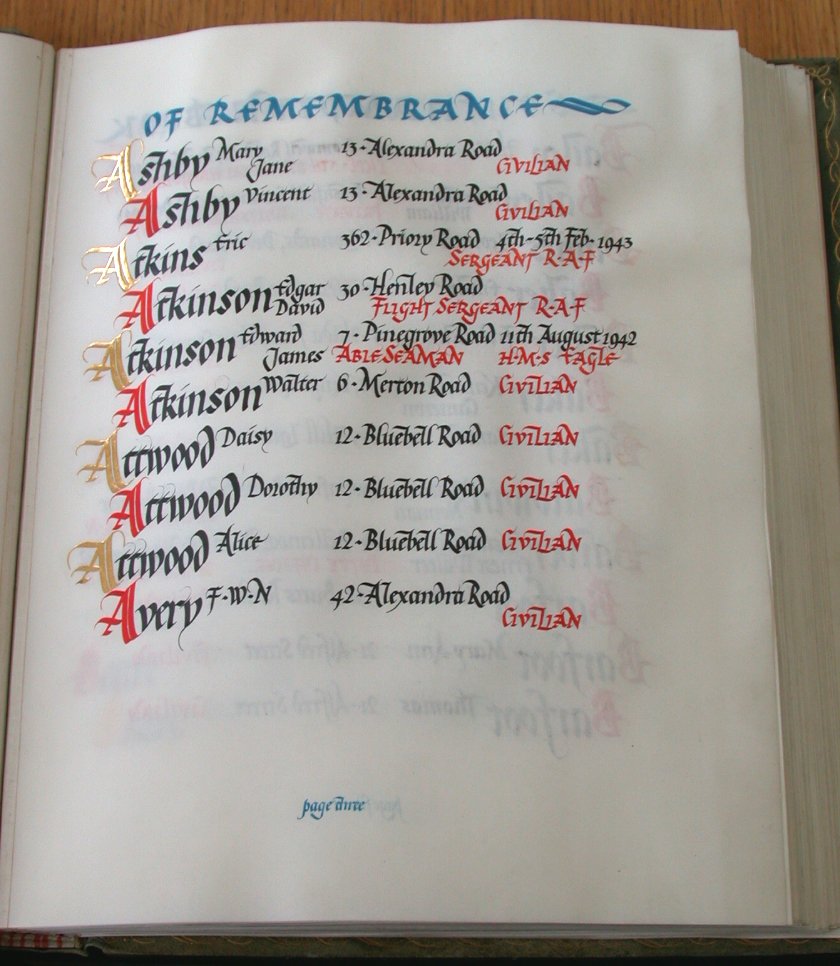 OF REMEMBRANCE
Ashby Mary Jane 13·Alexandra Road
CIVILIAN
Ashby Vincent 13·Alexandra Road
CIVILIAN
Atkins Eric 362·Priory Road 4th-5th Feb·1943
SERGEANT R·A·F
Atkinson Edgar David 30·Henley Road
FLIGHT SERGEANT R·A·F
Atkinson Edward James 7·Pinegrove Road 11th August 1942
ABLE SEAMAN H·M·S EAGLE
Atkinson Walter 6·Merton Road CIVILIAN
Attwood Daisy 12·Bluebell Road CIVILIAN
Attwood Dorothy 12·Bluebell Road CIVILIAN
Attwood Alice 12·Bluebell Road CIVILIAN
Avery F·W·N 42·Alexandra Road
CIVILIAN
page three